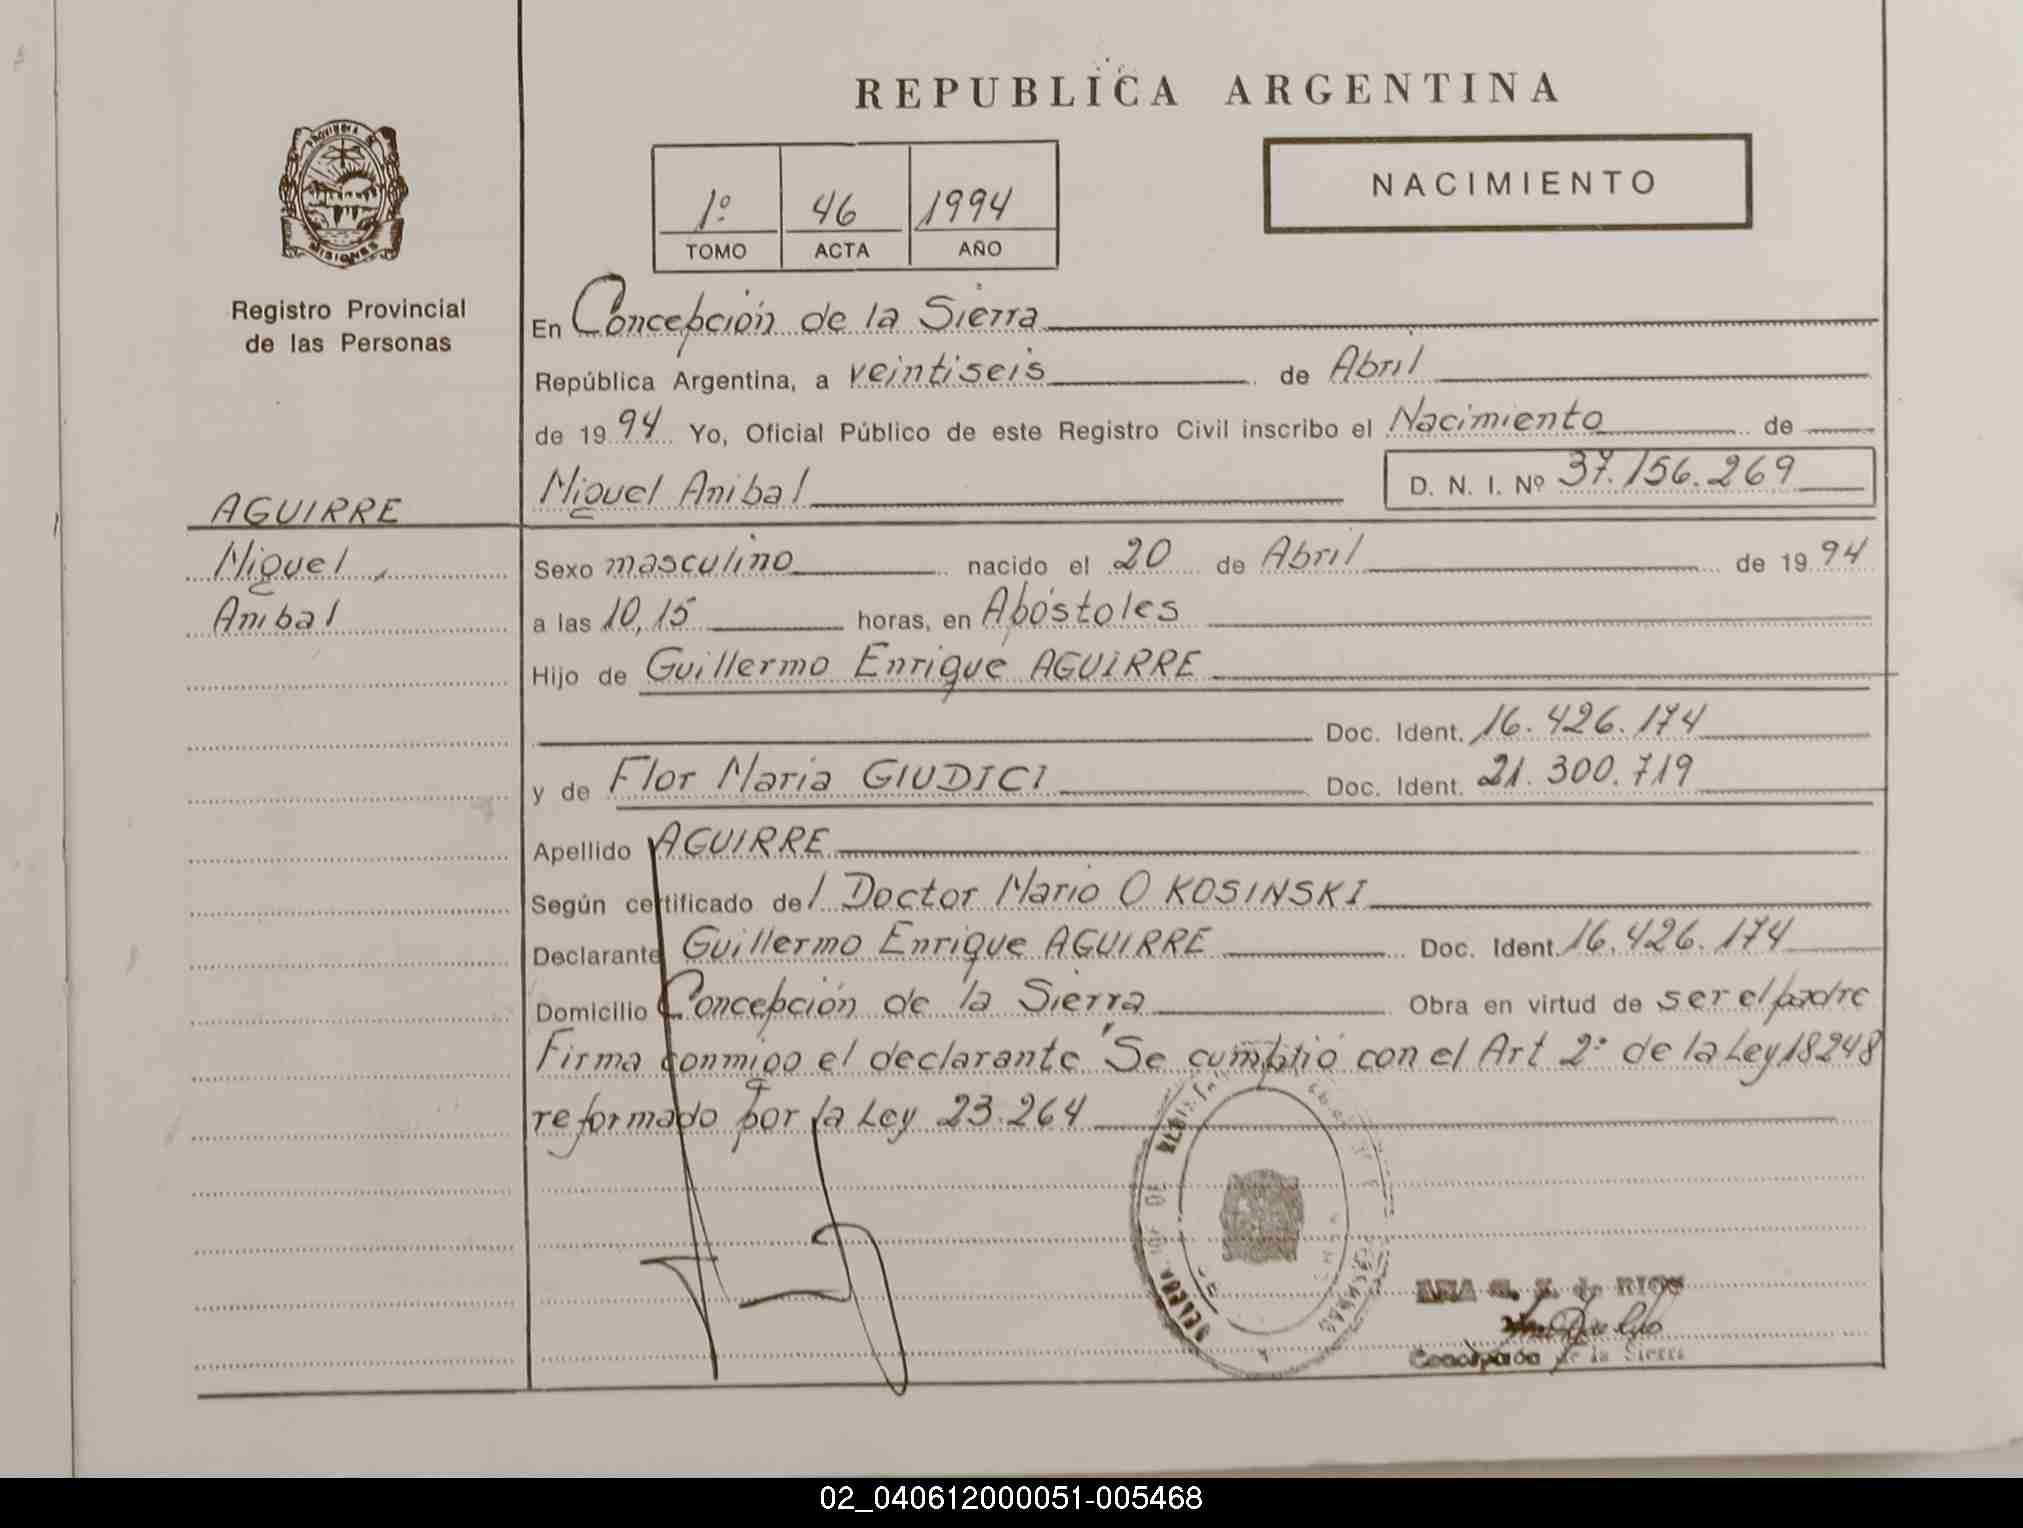 REPUBLICA ARGENTINA
PROVINCIA DE
MISIONES
Registro Provincial
de las Personas
1º 46 1994
TOMO ACTA AÑO
NACIMIENTO
En Concepción de la Sierra
República Argentina, a veintiseis de Abril
de 1994 Yo, Oficial Público de este Registro Civil inscribo el Nacimiento de
Miguel Anibal D. N. I. Nº 37.156.269
AGUIRRE
Miguel
Anibal
Sexo masculino nacido el 20 de Abril de 1994
a las 10,15 horas, en Apóstoles
Hijo de Guillermo Enrique AGUIRRE
Doc. Ident. 16.426.174
y de Flor Maria GIUDICI Doc. Ident. 21.300.719
Apellido AGUIRRE
Según certificado del Doctor Mario O KOSINSKI
Declarante Guillermo Enrique AGUIRRE Doc. Ident. 16.426.174
Domicilio Concepción de la Sierra Obra en virtud de ser el padre
Firma conmigo el declarante "Se cumplió con el Art 2º de la Ley 18248
reformado por la Ley 23.264
de RIOS
Concepción de la Sierra
02_040612000051-005468